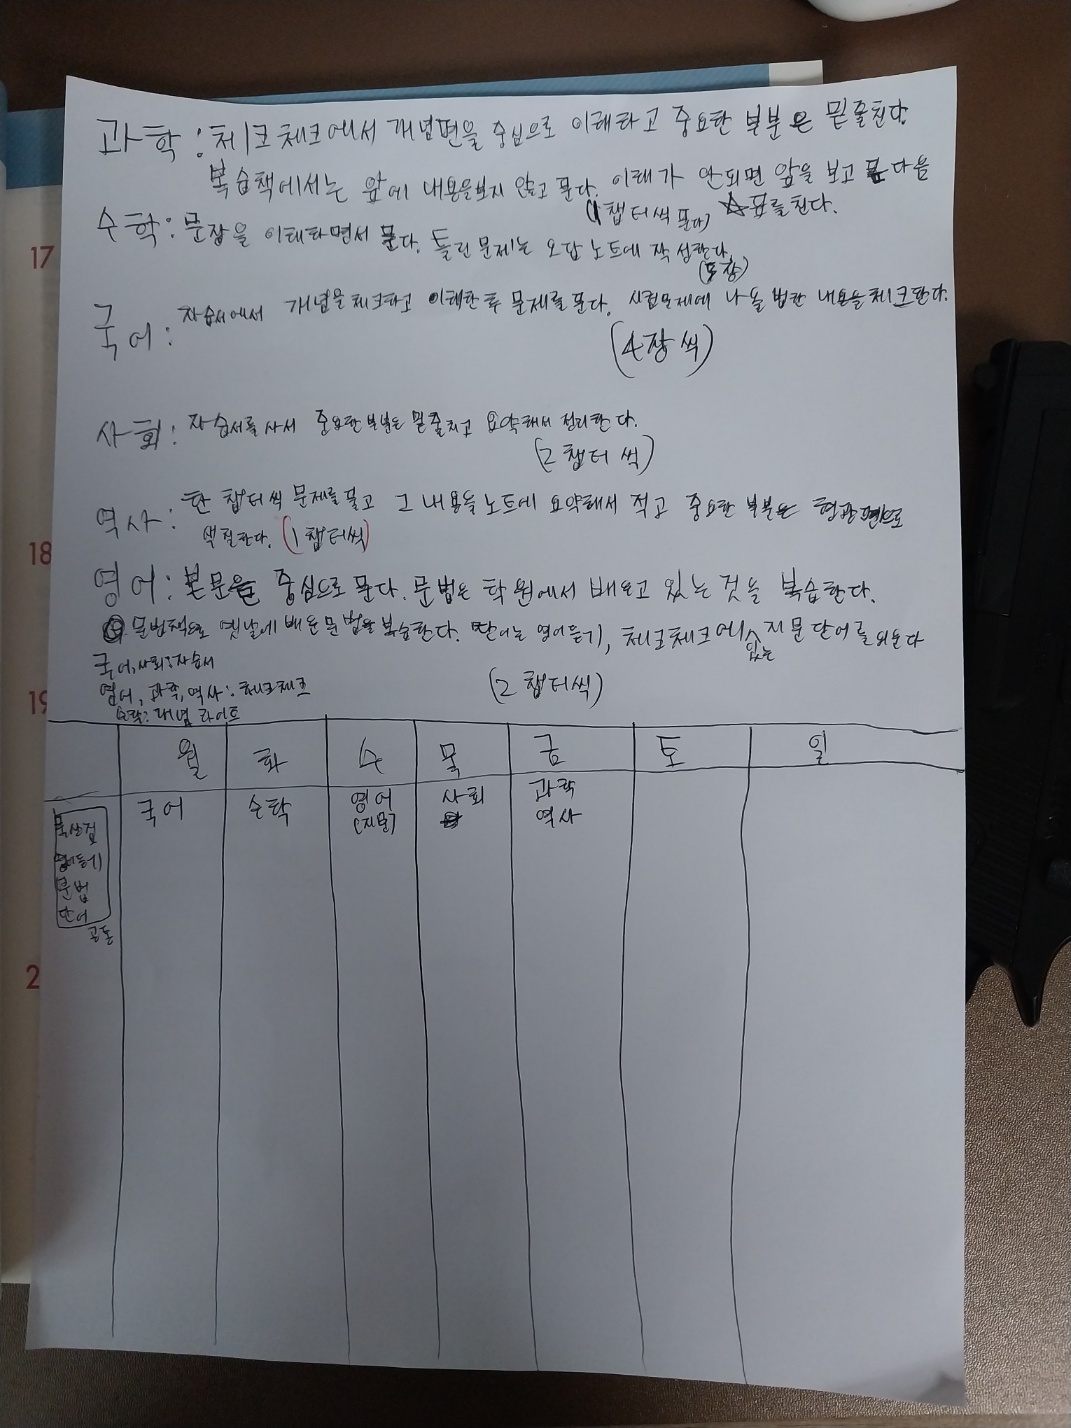 과학: 체크체크에서 개념편을 중심으로 이해하고 중요한 부분은 밑줄친다.
복습책에서는 앞에 내용을보지 않고 푼다. 이해가 안되면 앞을 보고 푼 다음
(1챕터씩 푼다) ☆표를친다.
수학: 문장을 이해하면서 푼다. 틀린 문제는 오답 노트에 작성한다.
국어: 자습서에서 개념을체크하고 이해한후 문제를푼다. 시험문제에 나올 법한 내용을체크한다.
(4장씩)
사회: 자습서를 사서 중요한부분은 밑줄치고 요약해서 정리한다.
(2챕터 씩)
역사: 한 챕터씩 문제를풀고 그 내용을노트에 요약해서 적고 중요한 부분은 형광펜으로
색칠한다. (1챕터씩)
영어: 본문을 중심으로 푼다. 문법은 학원에서 배우고 있는 것을 복습한다.
문법책으로 옛날에 배운문법을복습한다. 단어는 영어듣기, 체크체크에 있는 지문단어를외운다
국어,사회:자습서
영어, 과학,역사: 체크체크
수학: 개념 라이트
(2챕터씩)
월 화 수 목 금 토 일
국어 수학 영어 사회 과학
(지문) 역사
문법
단어
공통
17
18
19
2